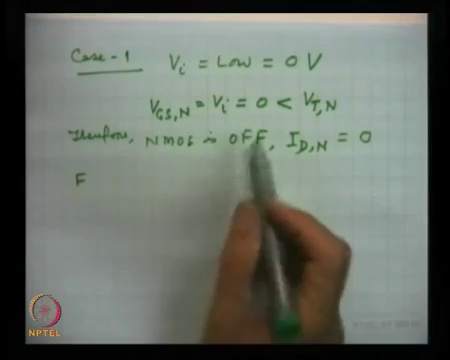 Case-1 Vi = Low = 0 V
VGS,N = Vi = 0 < VT,N
Therefore, NMOS is OFF, ID,N = 0
F
NPTEL